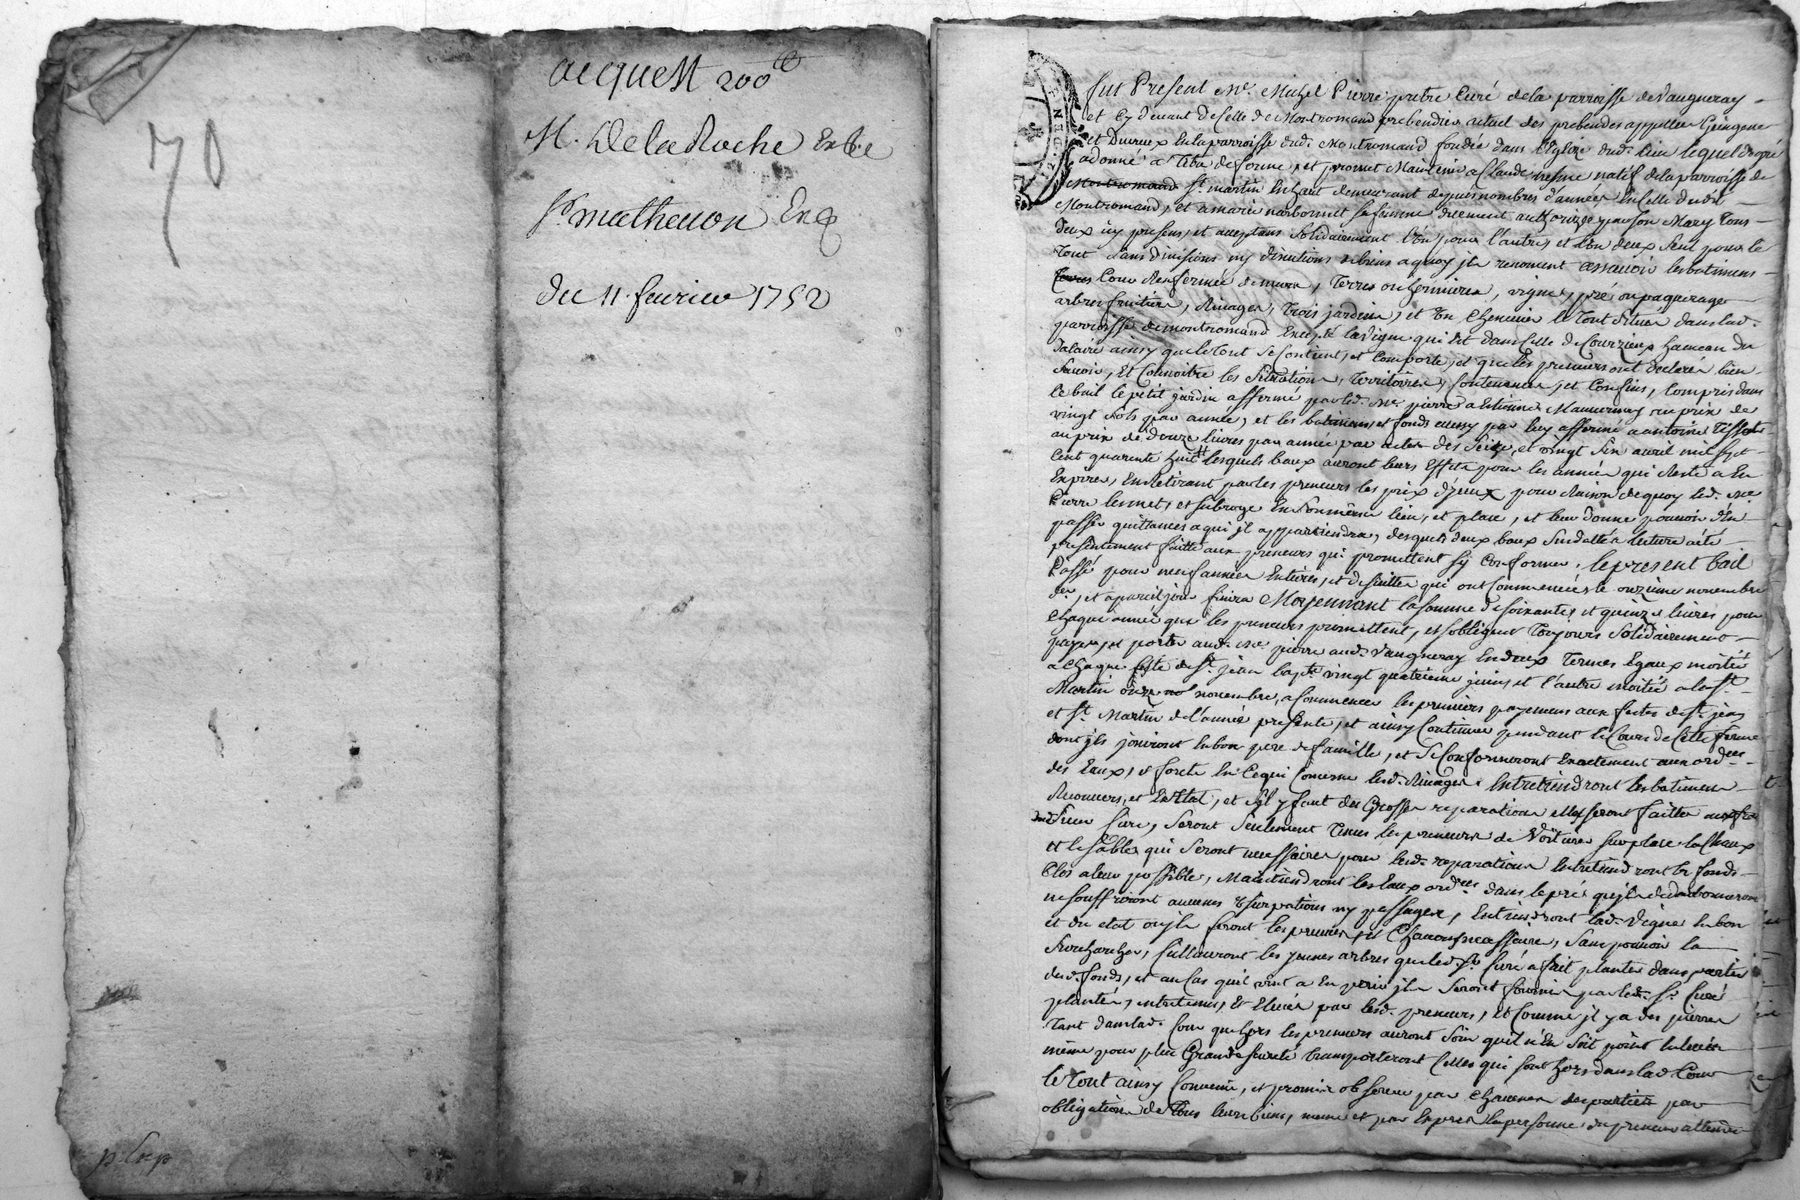 acquest 200
70
M. De la Roche
St. mathevon
du 11. fevrier 1752
fut Present Me. Michel Pierre pretre Curé de la parroisse de Vaugneray
et cy devant de Celle de Montromand prebendier actuel des prebendes appellés
et Duvieux En la parroisse dud. Montromand fondée dans l'Eglise dud. lieu lequel de gré
a donné a titre de ferme, et promet Maintenir a Claude natif de la parroisse de
Montromand St. martin En haut demeurant depuis nombres d'années En Celle dudit
Montromand, et a marie narbonnet sa femme dicement authorizée par son Mary tous
deux icy presens, et acceptans Solidairement l'un pour l'autre, et l'un deux Seul pour le
tout Sans divisions ny discutions de biens a quoy ils renoncent assavoir les batimens
Cour Renfermée de murs, terres ou chenevieres, vigne, pré ou paquerage
arbres fruitiers, Rivages, trois jardins, et un Chenevier le tout Situés dans lad.
parroisse de montromand Excepté la vigne qui est dans Celle de Courzieux hameau du
ainsy que le tout Se Contient, et Comporte, et que les preneurs ont declarés bien
Scavoir, et Connoitre les Situations, territoires, Contenances, et Confins, Compris dans
le bail le petit jardin affermé par led. Me. pierre a Etienne au prix de
vingt Sols par année, et les batimens et fonds aussy par luy affermé a antoine
au prix de douze livres par année par actes des Seize, et vingt Six avril mil Sept
Cent quarente huit lesquels baux auront leurs Effets pour les années qui Reste a En
Expirer, En Retirant par les preneurs les prix d'yceux pour Raison de quoy led. Me.
Pierre les met, et Subroge En Son même lieu, et place, et leur donne pouvoir d'En
passer quittances a qui il appartiendra, desquels deux baux Susdattés lecture a été
presentement faitte aux preneurs qui promettent Sy Conformer. le present bail
Passé pour neuf années Entieres, et de Suittes qui ont Commencées le onzieme novembre
der., et a pareil jour finira Moyennant la Somme de Soixante, et quinze livres pour
Chaque année que les preneurs promettent, et Sobligent toujours Solidairement
payer, et porter aud. Me. pierre aud. Vaugneray En deux termes Egaux moitié
a Chaque feste de St. jean bapte. vingt quatrieme juin, et l'autre moitié a la St.
Martin onze novembre, a Commencer les premiers payemens aux festes de St. jean
et St. Martin de l'année presente, et ainsy Continuer pendant le Cours de Cette ferme
dont ils jouiront En bon pere de famille, et Se Conformeront Exactement aux ordces.
des Eaux, et forets En Cequi Concerne lesd. Rivages. Entretiendront les batimens
Recouvers, et En Etat, et Sil y faut des Grosses reparations Elles Seront faittes aux frais
dud. Sieur Curé, Seront Seulement tenus les preneurs de Voiturer Sur place la Chaux
et le Sable qui Seront necessaires pour lesd. reparations Entretiendront les fonds
Clos a leur possible, Maintiendront les Eaux ordres. dans le pré
ne Souffriront aucunes Usurpations ny passages, Entretiendront lad. Vigne En bon
et du etat ou ils feront les provins, et Chavons necessaire, Sans pouvoir la
Surcharger, Cultiveront les jeunes arbres que led. Sr. Curé a fait planter dans partie
desd. fonds, et au Cas quil vint a En perir ils Seront fournis par led. Sr. Curé
plantés, entretenus, et Elevés par lesd. preneurs, et Comme il y a des pierres
tant dans lad. Cour que hors les preneurs auront Soin quil n'En Soit point Enlevées
même pour plus Grande Sureté transporteront Celles qui Sont hors dans lad. Cour
le tout ainsy Convenu, et promis observer par Chacunes des parties par
obligation de tous leurs biens, mesme et par Exprès la personne du preneur attendu